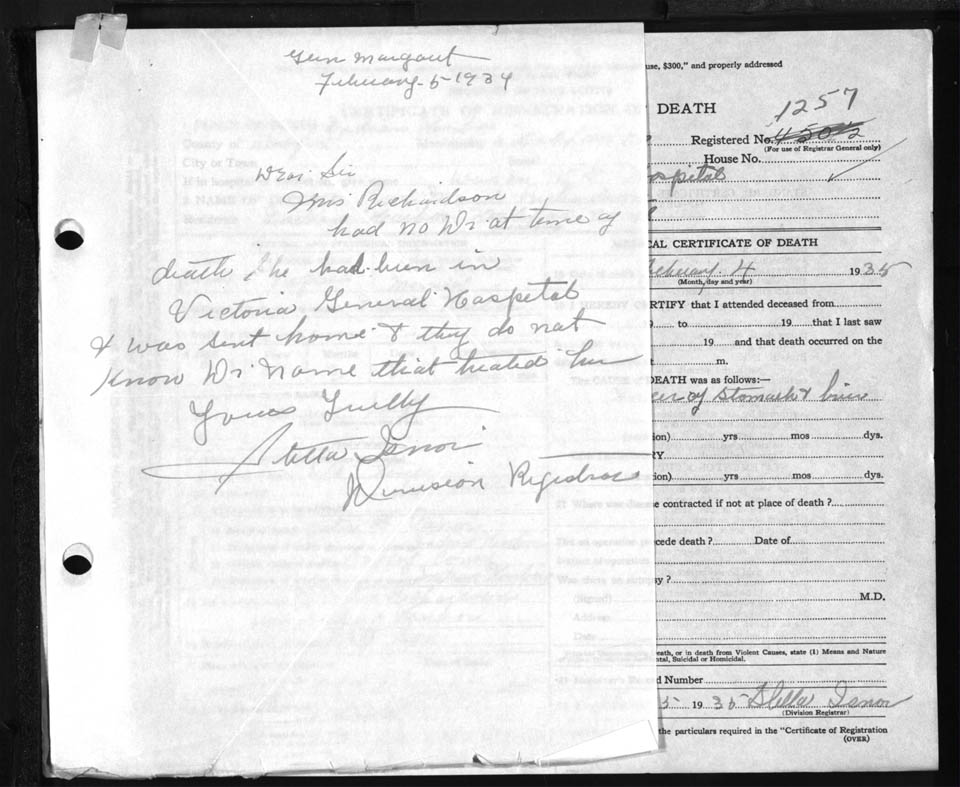 Glen Margaret
February 5 1934
Dear Sir
Mrs Richardson
had no Dr at time of
death She had been in
Victoria General Hospital
& was sent home & they do not
know Dr Name that treated her
Yours Truly
Stella Isnor
Division Registrar
use, $300," and properly addressed
DEATH
1257
Registered No. 4502
(For use of Registrar General only)
House No.
Hospital
CAL CERTIFICATE OF DEATH
February 4 1935
(Month, day and year)
CERTIFY that I attended deceased from
to 19 that I last saw
19 and that death occurred on the
m.
DEATH was as follows:—
cer of Stomach & liver
ion) yrs mos dys.
RY
ion) yrs mos dys.
e contracted if not at place of death ?
cede death ? Date of
sy ?
M.D.
eath, or in death from Violent Causes, state (1) Means and Nature
ntal, Suicidal or Homicidal.
d Number
5 1935 Stella Isnor
(Division Registrar)
the particulars required in the "Certificate of Registration
(OVER)